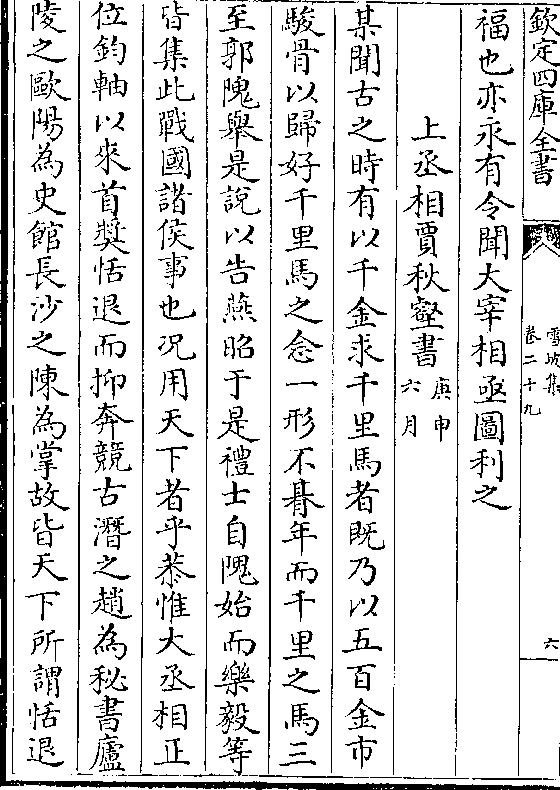 欽定四庫全書
雪坡集
卷二十九
六
福也亦永有令聞大宰相亟圖利之
上丞相賈秋壑書
庚申
六月
某聞古之時有以千金求千里馬者既乃以五百金市
駿骨以歸好千里馬之念一形不朞年而千里之馬三
至郭隗舉是說以告燕昭于是禮士自隗始而樂毅等
皆集此戰國諸侯事也況用天下者乎恭惟大丞相正
位鈞軸以來首奬恬退而抑奔競古潛之趙為秘書廬
陵之歐陽為史館長沙之陳為掌故皆天下所謂恬退